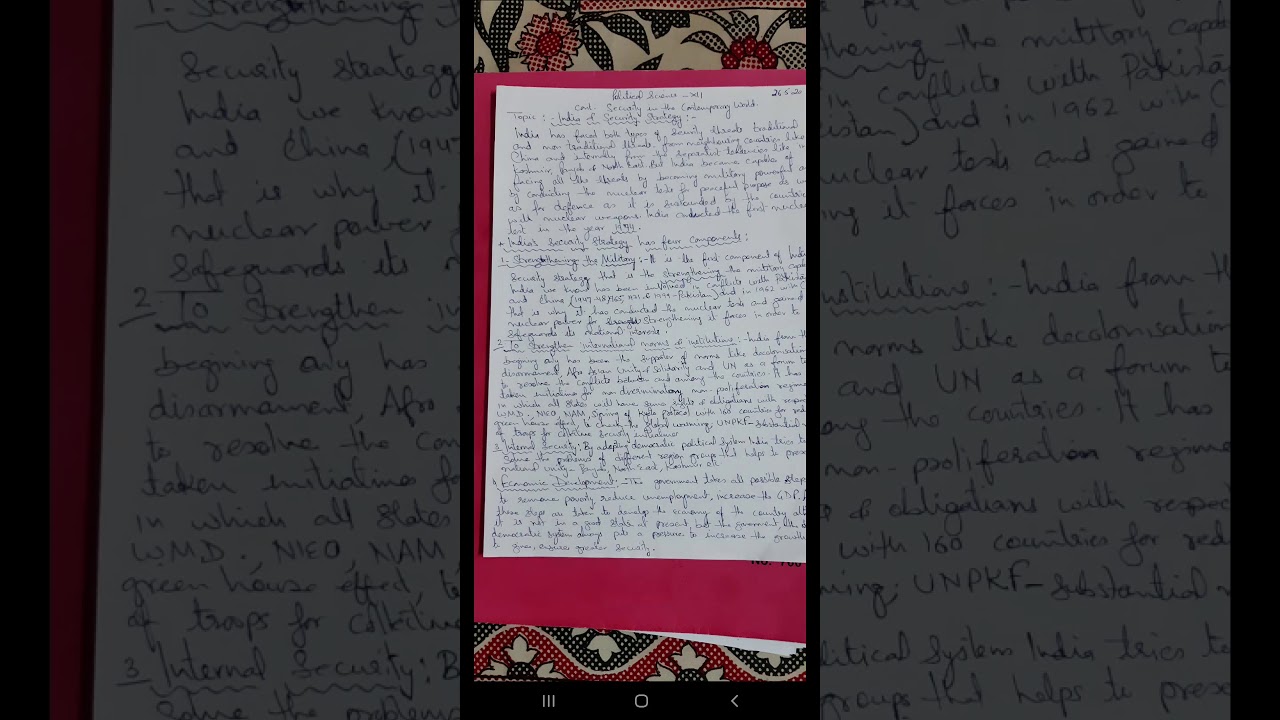 Political Science - XII 26.5.20
Cont. Security in the Contemporary World.
Topic : India's Security Strategy :-
India has faced both types of Security threats traditional
and non traditional threats, from neighbouring countries like
China and internally from the separatist tendencies like in
Kashmir, Punjab or North East. But India became capable of
facing all the threats by becoming military powerful and
by conducting the nuclear tests for peaceful purpose as
as for defence as it is surrounded by the countries
with nuclear weapons. India conducted the first nuclear
test in the year 1974.
* India's Security Strategy has four Components :
1- Strengthening the Military :- It is the first component of India
Security strategy that is the strengthening the military capa
India we know has been involved in conflicts with Pakistan
and China (1947-48, 1965, 1971 & 1999 - Pakistan) and in 1962 with C
that is why it has conducted the nuclear tests and gained
nuclear power for strengthening it forces in order to
Safeguards its national interests.
2 To Strengthen international norms & institutions :- India from the
begining any has been the supporter of norms like decolonisation
disarmament Afro Asian Unity & Solidarity and UN as a forum to
to resolve the conflicts between and among the countries. It has
taken initiatives for non-discriminatory non-poliferation regime
in which all states will have same rights & obligations with respec
WMD. NIEO, NAM, Signing of Kyoto Protocol with 160 countries for red
green house effect, to check the global warming, UNPKF - Substantial
of troops for collective Security initiatives
3 Internal Security: By adopting democratic political System India tries to
Solve the problems of different region groups that helps to prese
national unity - Punjab, North East, Kashmir etc.
4 Economic Development :- The government takes all possible steps
to remove poverty, reduce unemployment, increase the GDP.
these steps are taken to develop the economy of the country
it is not in a good state at present, but the government,
democratic system always puts a pressure to increase the growth
to ensure greater Security.